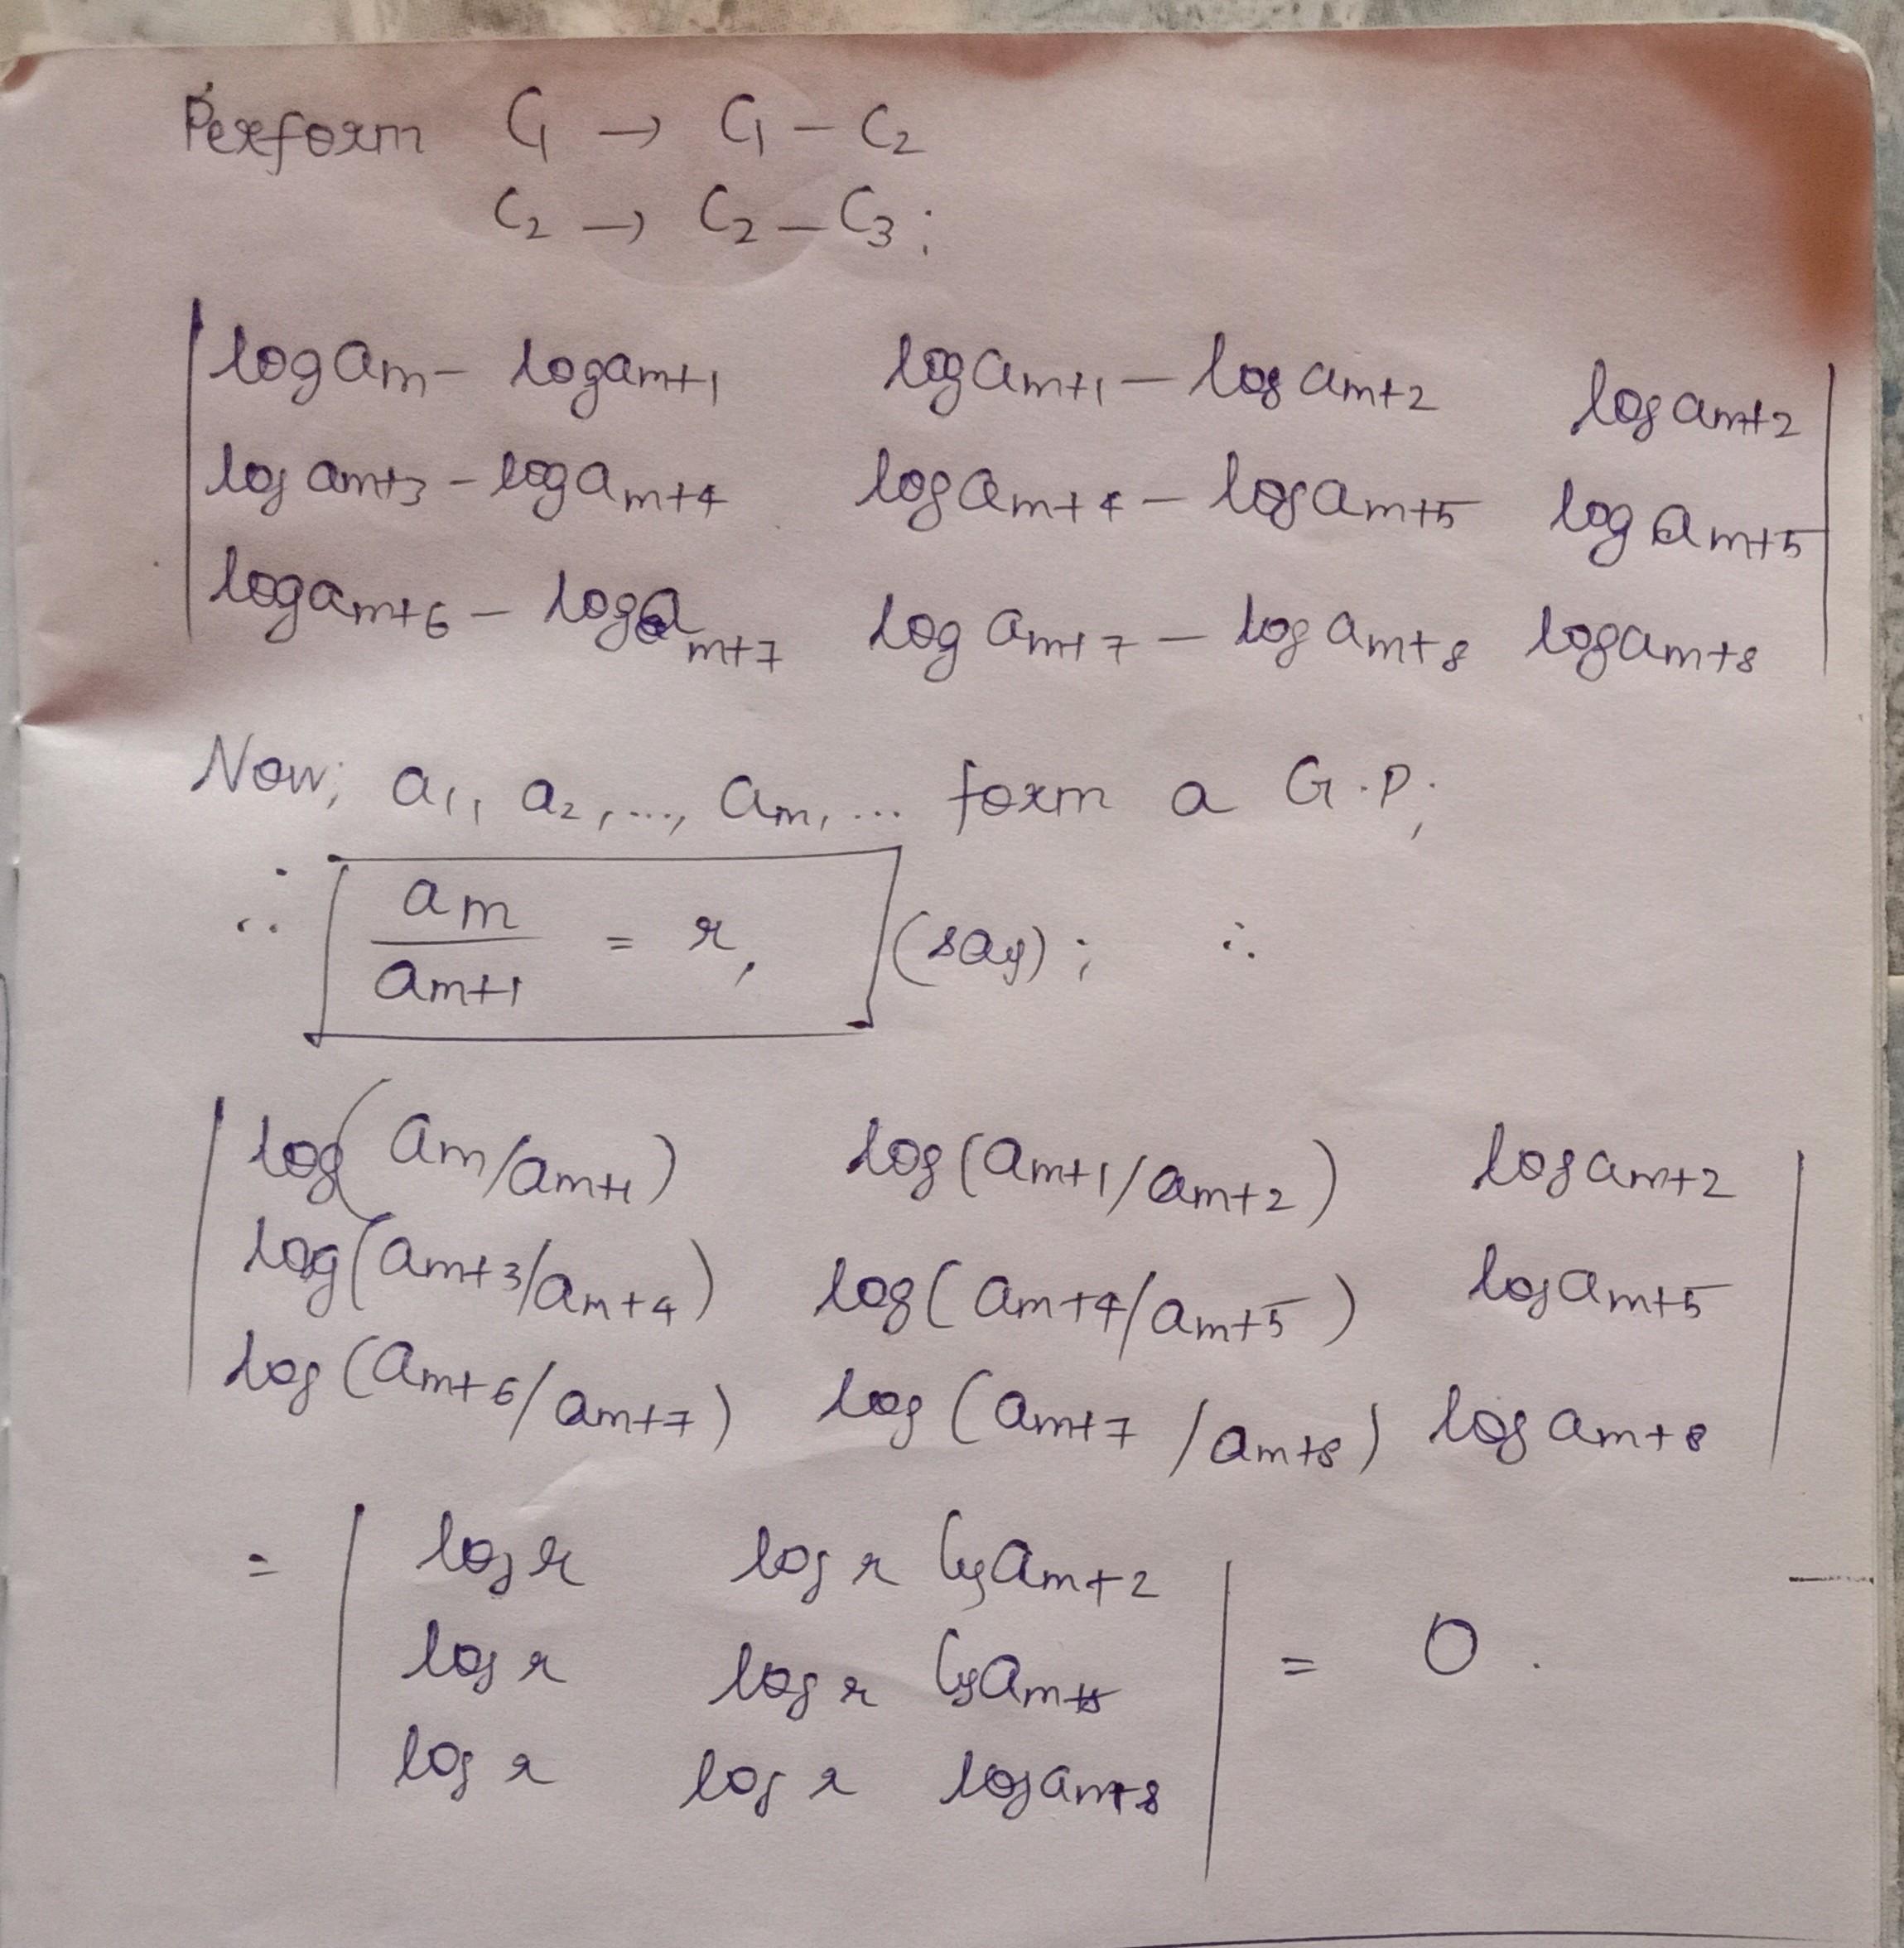 Perform C₁ → C₁ − C₂
C₂ → C₂ − C₃ ;
| log aₘ − log aₘ₊₁   log aₘ₊₁ − log aₘ₊₂   log aₘ₊₂ |
| log aₘ₊₃ − log aₘ₊₄   log aₘ₊₄ − log aₘ₊₅   log aₘ₊₅ |
| log aₘ₊₆ − log aₘ₊₇   log aₘ₊₇ − log aₘ₊₈   log aₘ₊₈ |
Now; a₁, a₂, ..., aₘ, ... form a G.P.;
∴ aₘ / aₘ₊₁ = r, (say); ∴
| log(aₘ/aₘ₊₁)   log(aₘ₊₁/aₘ₊₂)   log aₘ₊₂ |
| log(aₘ₊₃/aₘ₊₄)   log(aₘ₊₄/aₘ₊₅)   log aₘ₊₅ |
| log(aₘ₊₆/aₘ₊₇)   log(aₘ₊₇/aₘ₊₈)   log aₘ₊₈ |
= | log r   log r   log aₘ₊₂ |
| log r   log r   log aₘ₊₅ | = 0.
| log r   log r   log aₘ₊₈ |